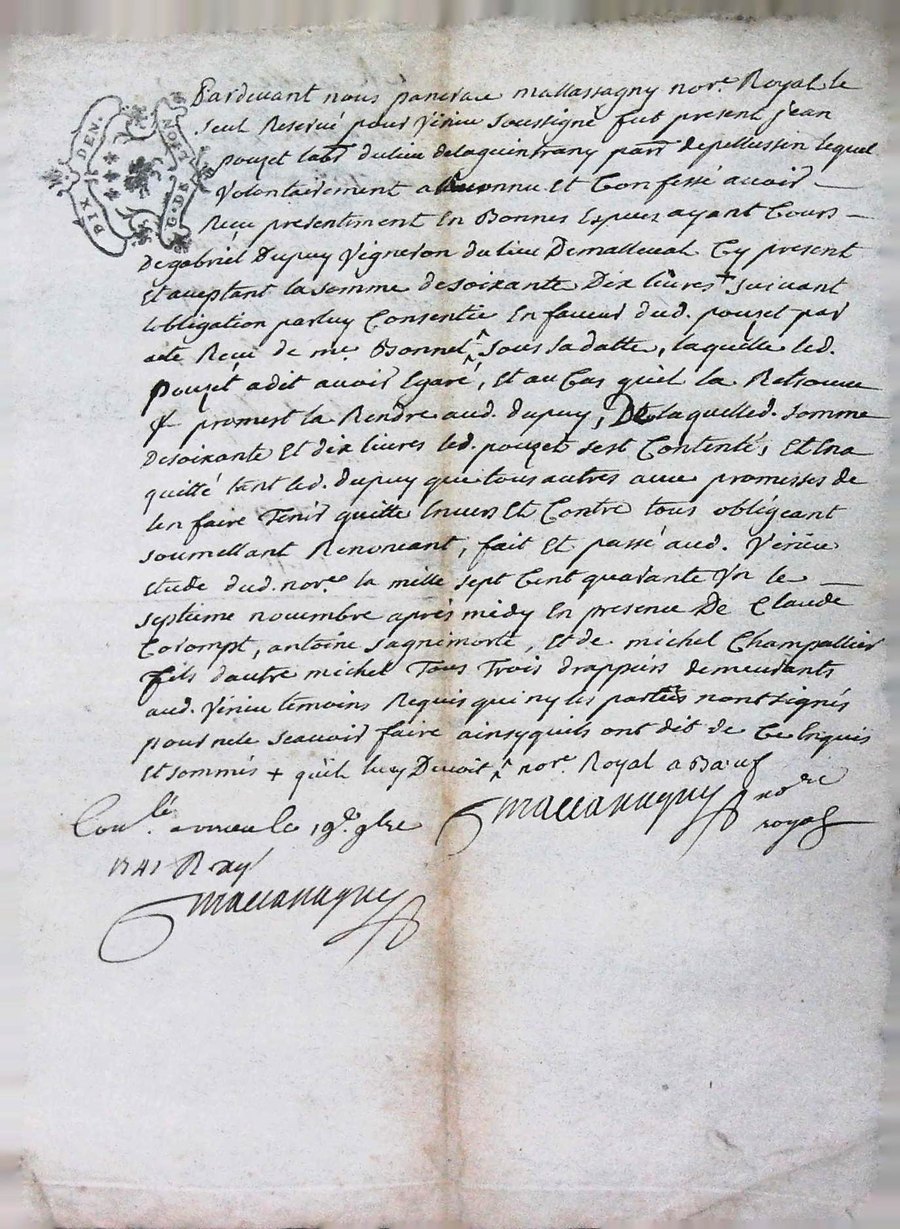 DIX DEN.
G. DE LYON
Pardevant nous pancrace mallassagny nore. Royal le
seul Reservé pour Virieu soussigné fut present jean
pouzet labr. du lieu de laguintrany parr. de pellussin lequel
volontairement a Reconnu et Confessé avoir
Reçu presentement En Bonnes Espèces ayant Cours
de gabriel Dupuy Vigneron du lieu De malleval Cy present
Et aceptant la somme de soixante Dix livres + suivant
lobligation par luy Consentie En faveur dud. pouzet par
acte Reçu de me. Bonnet ^ sous sa datte, laquelle led.
pouzet a dit avoir Egaré, Et au Cas quil la Retrouve
promest la Rendre aud. dupuy, De laquelle d. somme
de soixante Et dix livres led. pouzet sest Contenté, Et En a
quitté tant led. dupuy que tous autres avec promesses de
len faire Tenir quitte Envers Et Contre tous obligeant
soumettant Renoncant, fait Et passé aud. Virieu
Etude dud. nore. la mille sept Cent quarante Un le
septieme novembre après midy En presence De Claude
Corompt, antoine sagnimorte, Et de michel Champallier
fils d'autre michel Tous Trois drappiers demeurants
aud. Virieu temoins Requis qui ny les parties nont signés
pour ne le scavoir faire ainsy quils ont dit de Ce Enquis
Et sommés + quil luy Devoit ^ nore. Royal a Bœuf
maccassagny nore
royal
Conlé. a virieu le 19e. 9bre
1741 R
maccassagny